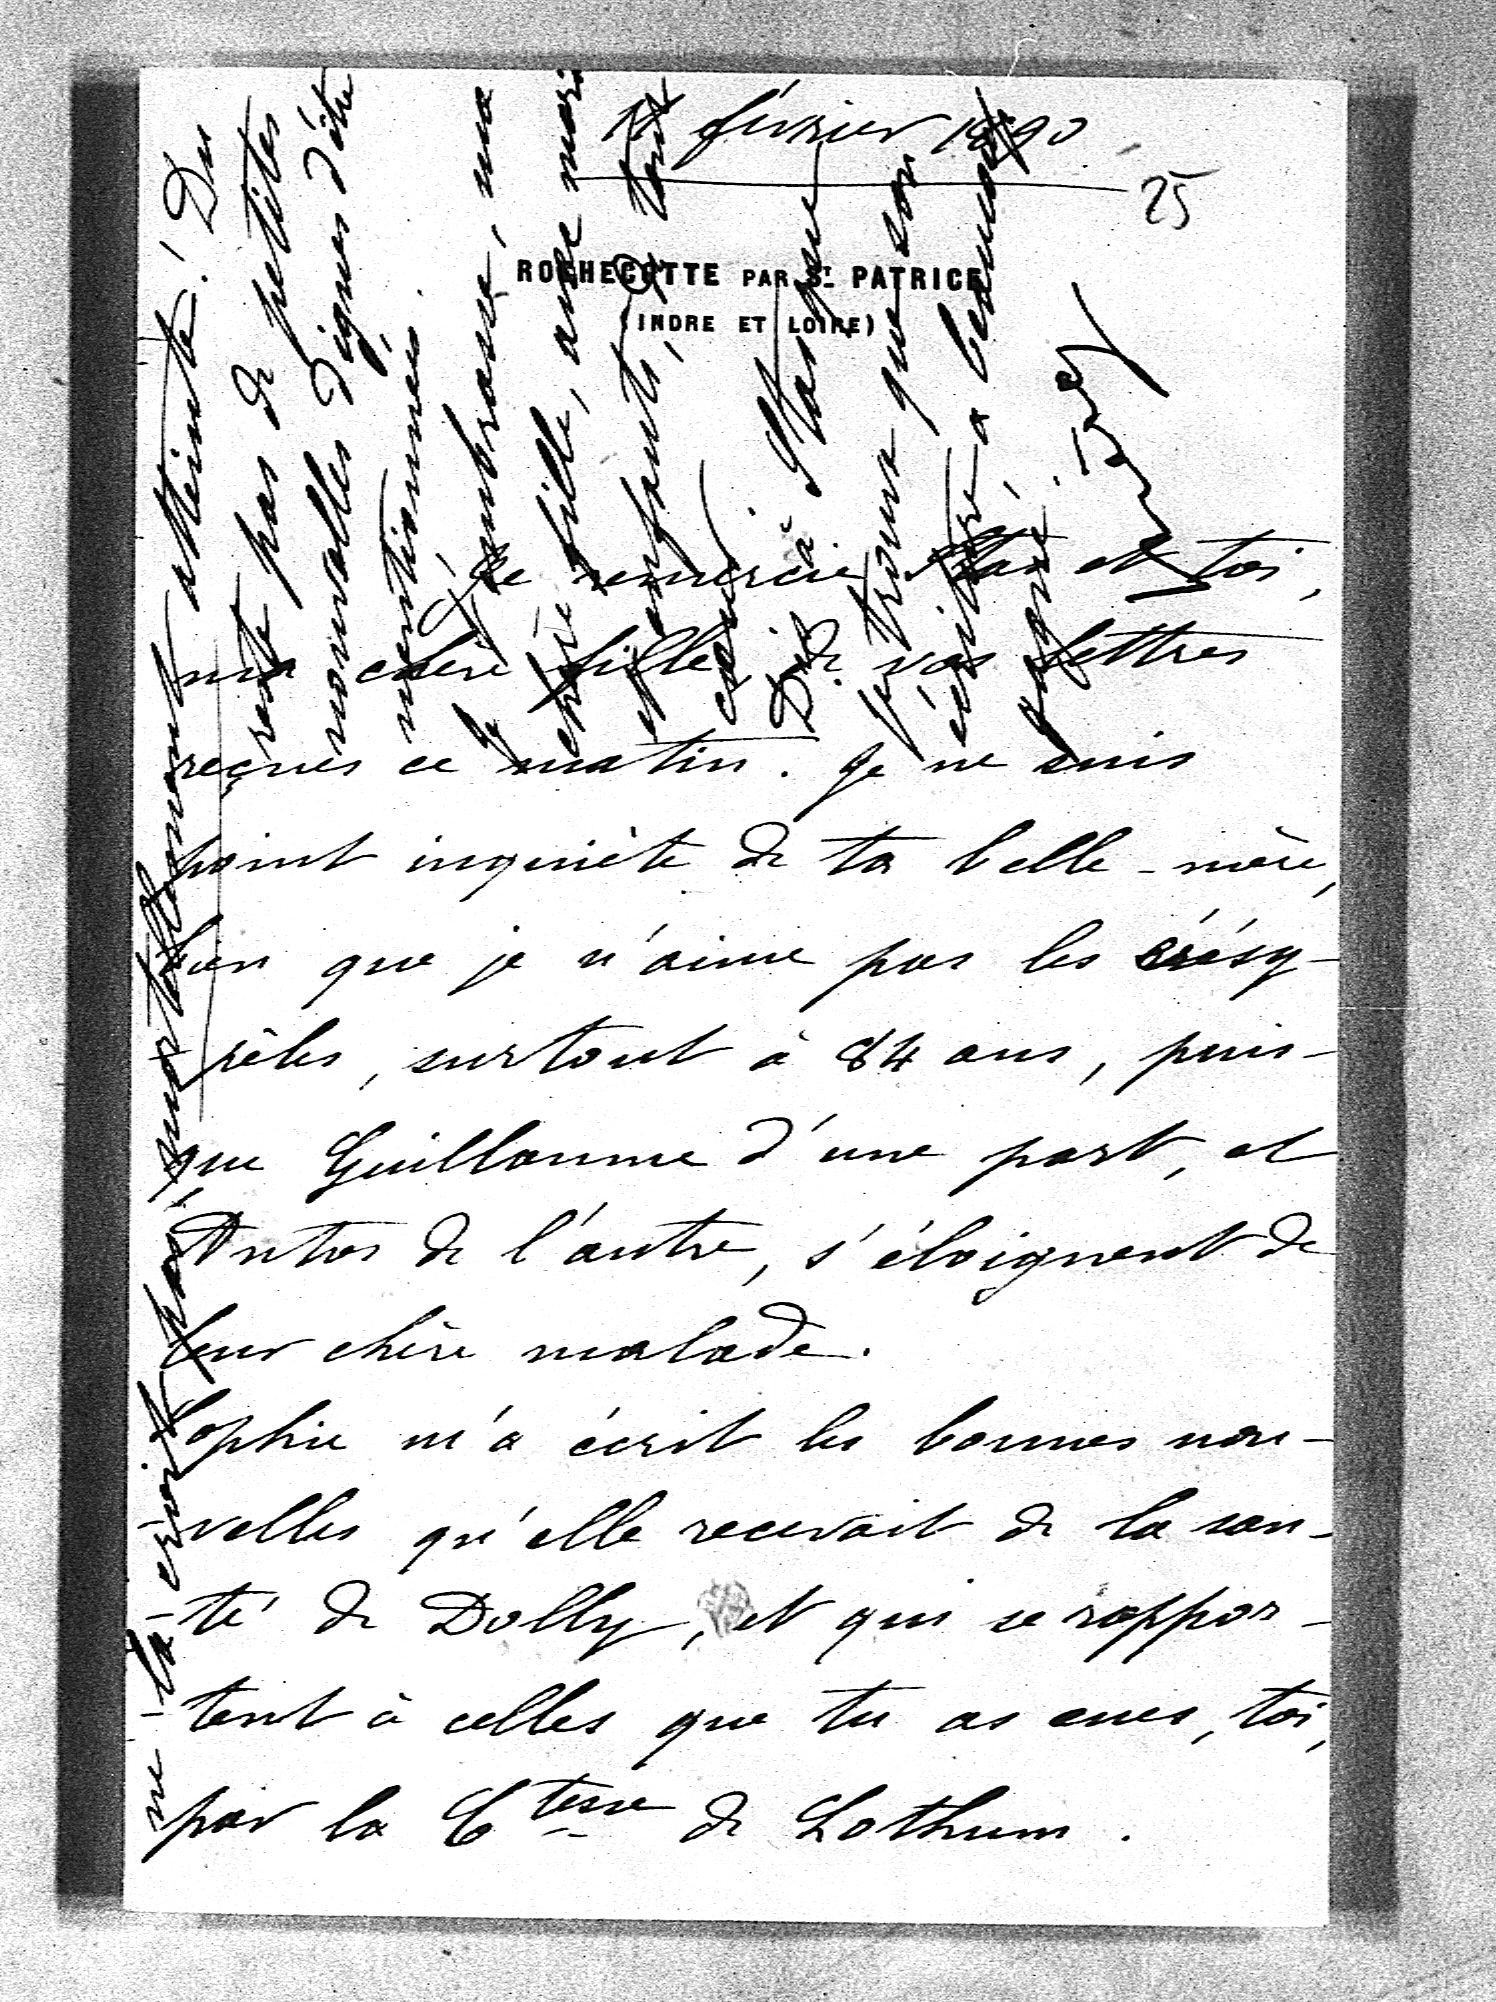 11 février 1890
25
ROCHECOTTE PAR ST PATRICE
(INDRE ET LOIRE)
Je remercie Stas et toi,
ma chère fille, de vos lettres
reçues ce matin. Je ne suis
point inquiète de ta belle-mère,
bien que je n'aime pas les érésy-
pèles, surtout à 84 ans, puis-
que Guillaume d'une part, et
Antos de l'autre, s'éloignent de
leur chère malade.
Sophie m'a écrit les bonnes nou-
-velles qu'elle recevait de la san-
-té de Dolly, et qui se rappor-
-tent à celles que tu as eues, toi,
par la Ctesse de Lothum.
ne la croit pas, mortellement atteinte! Du
reste pas de petites
nouvelles dignes d'être
mentionnées.
Je t'embrasse, ma
chère fille, avec mari
et enfants, de tout
cœur.
Dis à Stas que
je trouve que son
écriture a beaucoup
gagné.